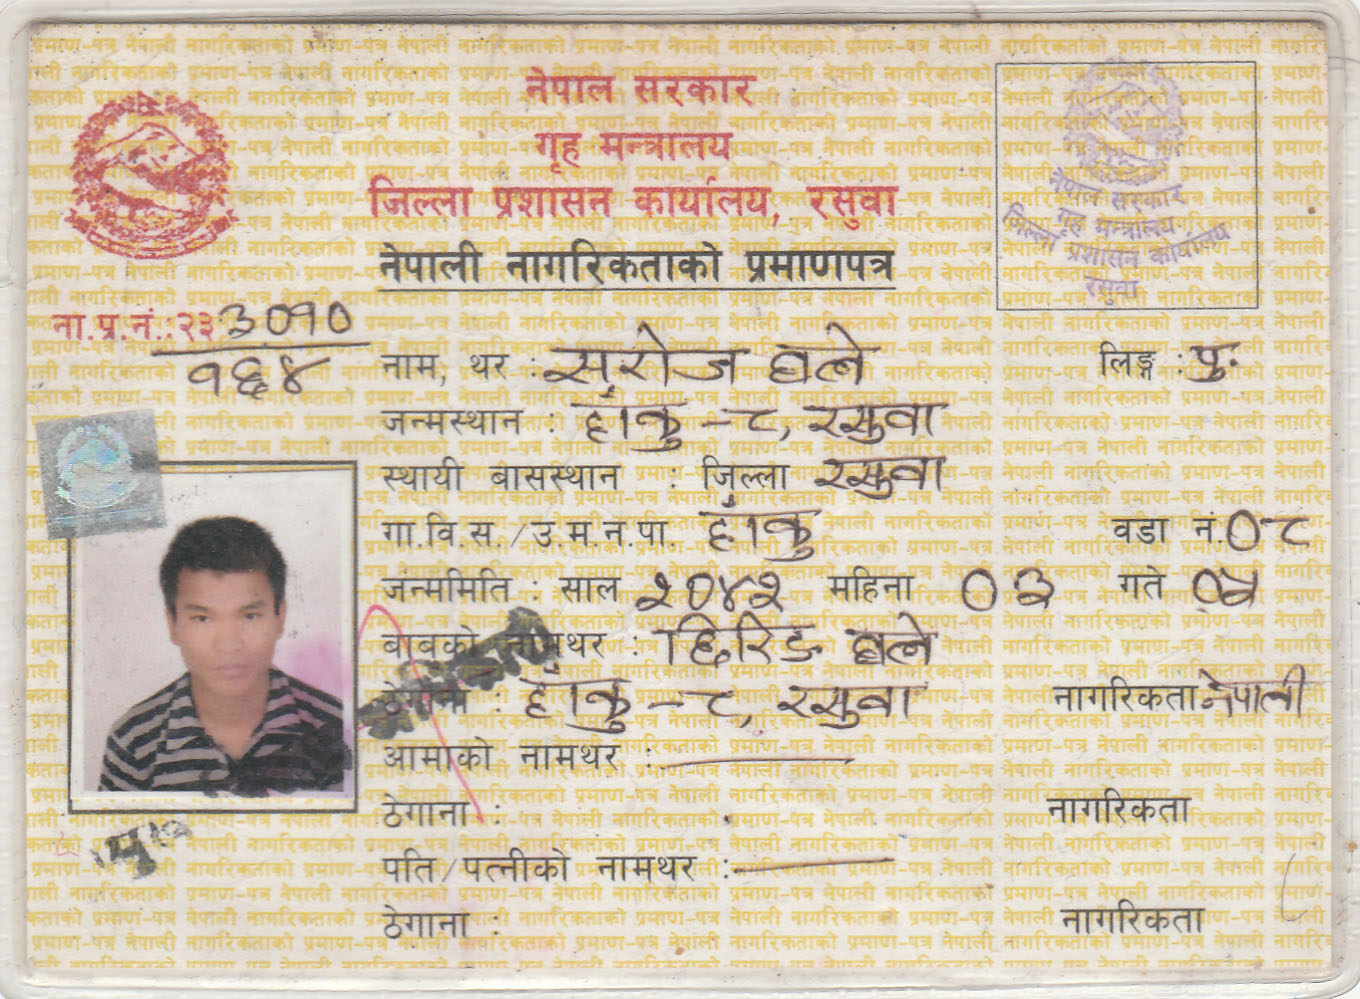 नेपाल सरकार
गृह मन्त्रालय
जिल्ला प्रशासन कार्यालय, रसुवा
नेपाली नागरिकताको प्रमाणपत्र
नेपाल सरकार
गृह मन्त्रालय
जिल्ला प्रशासन कार्यालय
रसुवा
ना.प्र.नं.:२३ ३०१०
१६४
नाम, थर : सरोज घले लिङ्ग : पु.
जन्मस्थान : हाकु -८, रसुवा
स्थायी बासस्थान : जिल्ला रसुवा
गा.वि.स./उ.म.न.पा. हाकु वडा नं. ०८
जन्ममिति : साल २०४२ महिना ०३ गते ०५
बाबुको नामथर : छिरिङ घले
ठेगाना : हाकु -८, रसुवा नागरिकता नेपाली
आमाको नामथर :
ठेगाना : नागरिकता
पति/पत्नीको नामथर :
ठेगाना : नागरिकता